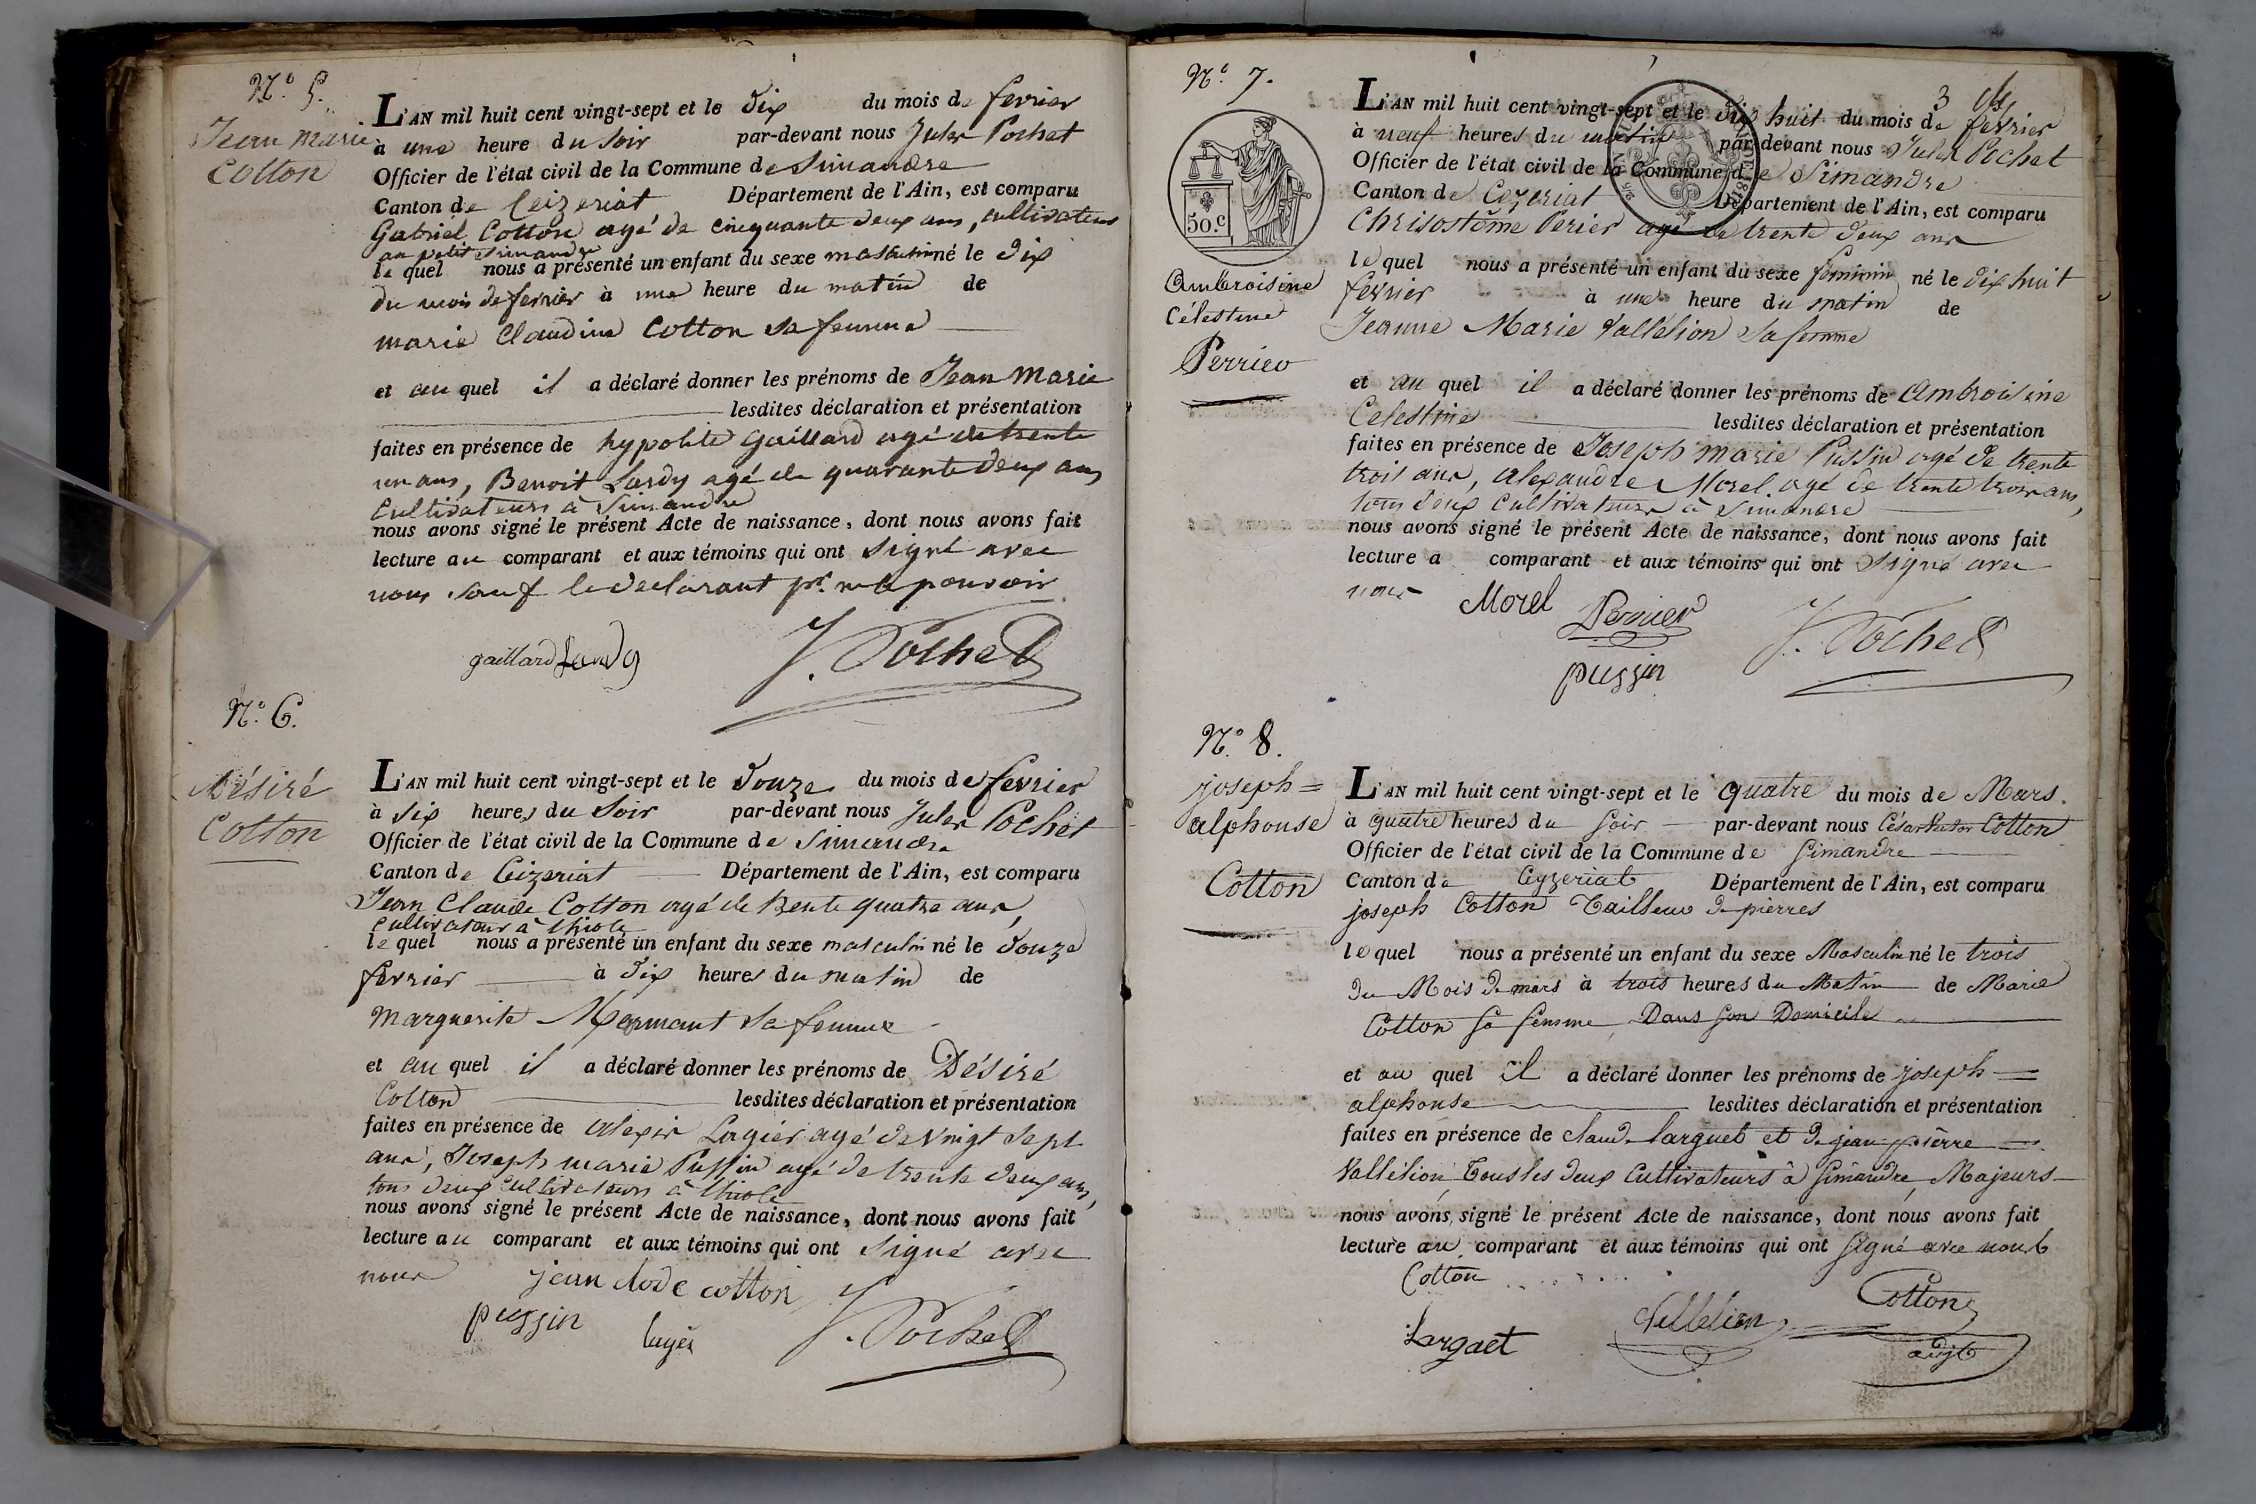 N.º 5.
Jean marie
Cotton
L'AN mil huit cent vingt-sept et le dix du mois de fevrier
à une heure du soir par-devant nous Jules Pochet
Officier de l'état civil de la Commune de Simandre
Canton de Ceizeriat Département de l'Ain, est comparu
Gabriel Cotton agé de cinquante deux ans, cultivateur
au petit Simandre
le quel nous a présenté un enfant du sexe masculin né le dix
du mois de fevrier à une heure du matin de
marie Claudine Cotton sa femme
et au quel il a déclaré donner les prénoms de Jean Marie
lesdites déclaration et présentation
faites en présence de hypolite Gaillard agé de trente
un ans, Benoit Lardy agé de quarante deux ans
Cultivateurs à Simandre
nous avons signé le présent Acte de naissance, dont nous avons fait
lecture au comparant et aux témoins qui ont signé avec
nous sauf le declarant pr. ne le pouvoir
gaillard Lardy J. Pochet
N.º 6.
Désiré
Cotton
L'AN mil huit cent vingt-sept et le douze du mois de fevrier
à six heures du soir par-devant nous Jules Pochet
Officier de l'état civil de la Commune de Simandre
Canton de Ceizeriat Département de l'Ain, est comparu
Jean Claude Cotton agé de trente quatre ans,
Cultivateur à thiole
le quel nous a présenté un enfant du sexe masculin né le douze
fevrier à dix heures du matin de
Marguerite Mermant sa femme
et au quel il a déclaré donner les prénoms de Désiré
Cotton lesdites déclaration et présentation
faites en présence de alexis Lagier agé de vingt sept
ans, Joseph marie Pussin agé de trente deux ans,
tous deux cultivateurs à thiole
nous avons signé le présent Acte de naissance, dont nous avons fait
lecture au comparant et aux témoins qui ont signé avec
nous jean clode cotton
pussin J. Pochet
N.º 7.
50.c
Ambroisine
Célestine
Perrier
3
L'AN mil huit cent vingt-sept et le dix huit du mois de fevrier
à neuf heures du matin par-devant nous Jules Pochet
Officier de l'état civil de la Commune de Simandre
Canton de Cezeriat Département de l'Ain, est comparu
Chrisostôme Perier agé de trente deux ans
le quel nous a présenté un enfant du sexe feminin né le dix huit
fevrier à une heure du matin de
Jeanne Marie Vallélion sa femme
et au quel il a déclaré donner les prénoms de Ambroisine
Celestine lesdites déclaration et présentation
faites en présence de Joseph marie Pussin agé de trente
trois ans, alexandre Morel agé de trente trois ans,
tous deux Cultivateurs à Simandre
nous avons signé le présent Acte de naissance, dont nous avons fait
lecture a comparant et aux témoins qui ont signé avec
nous Morel Perrier J. Pochet
pussin
N.º 8.
joseph=
alphonse
Cotton
L'AN mil huit cent vingt-sept et le quatre du mois de Mars.
à quatre heures du soir par-devant nous César Cotton
Officier de l'état civil de la Commune de Simandre
Canton de Ceyzeriat Département de l'Ain, est comparu
joseph Cotton Tailleur de pierres
le quel nous a présenté un enfant du sexe Masculin né le trois
du Mois de mars à trois heures du Matin de Marie
Cotton sa femme Dans son Domicile
et au quel il a déclaré donner les prénoms de joseph=
alphonse lesdites déclaration et présentation
faites en présence de claude larguet et de jean pierre=
Vallélion, Tous les deux Cultivateurs à Simandre, Majeurs
nous avons signé le présent Acte de naissance, dont nous avons fait
lecture au comparant et aux témoins qui ont signé avec nous
Cotton Cotton
Largaet Vellelion adjt